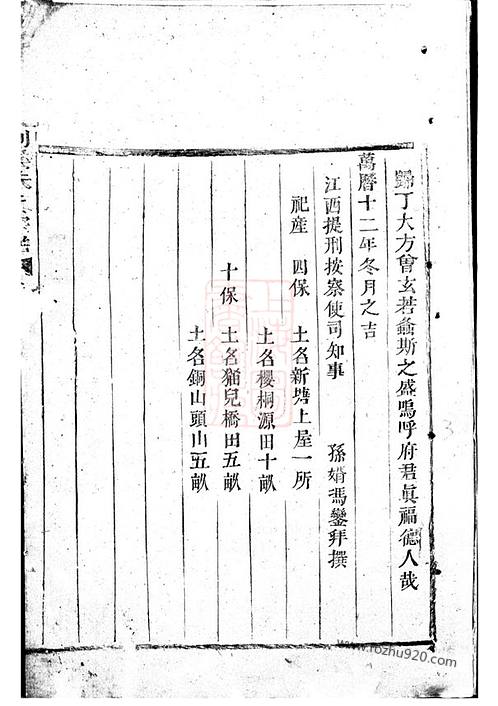 歸丁大方會玄若螽斯之盛嗚呼府君眞福德人哉
萬曆十二年冬月之吉
江西提刑按察使司知事 孫婿馮鑾拜撰
祀産 四保 土名新塘上屋一所
土名櫻桐源田十畝
十保 土名猫兒橋田五畝
土名銅山頭山五畝
www.rozhu920.com